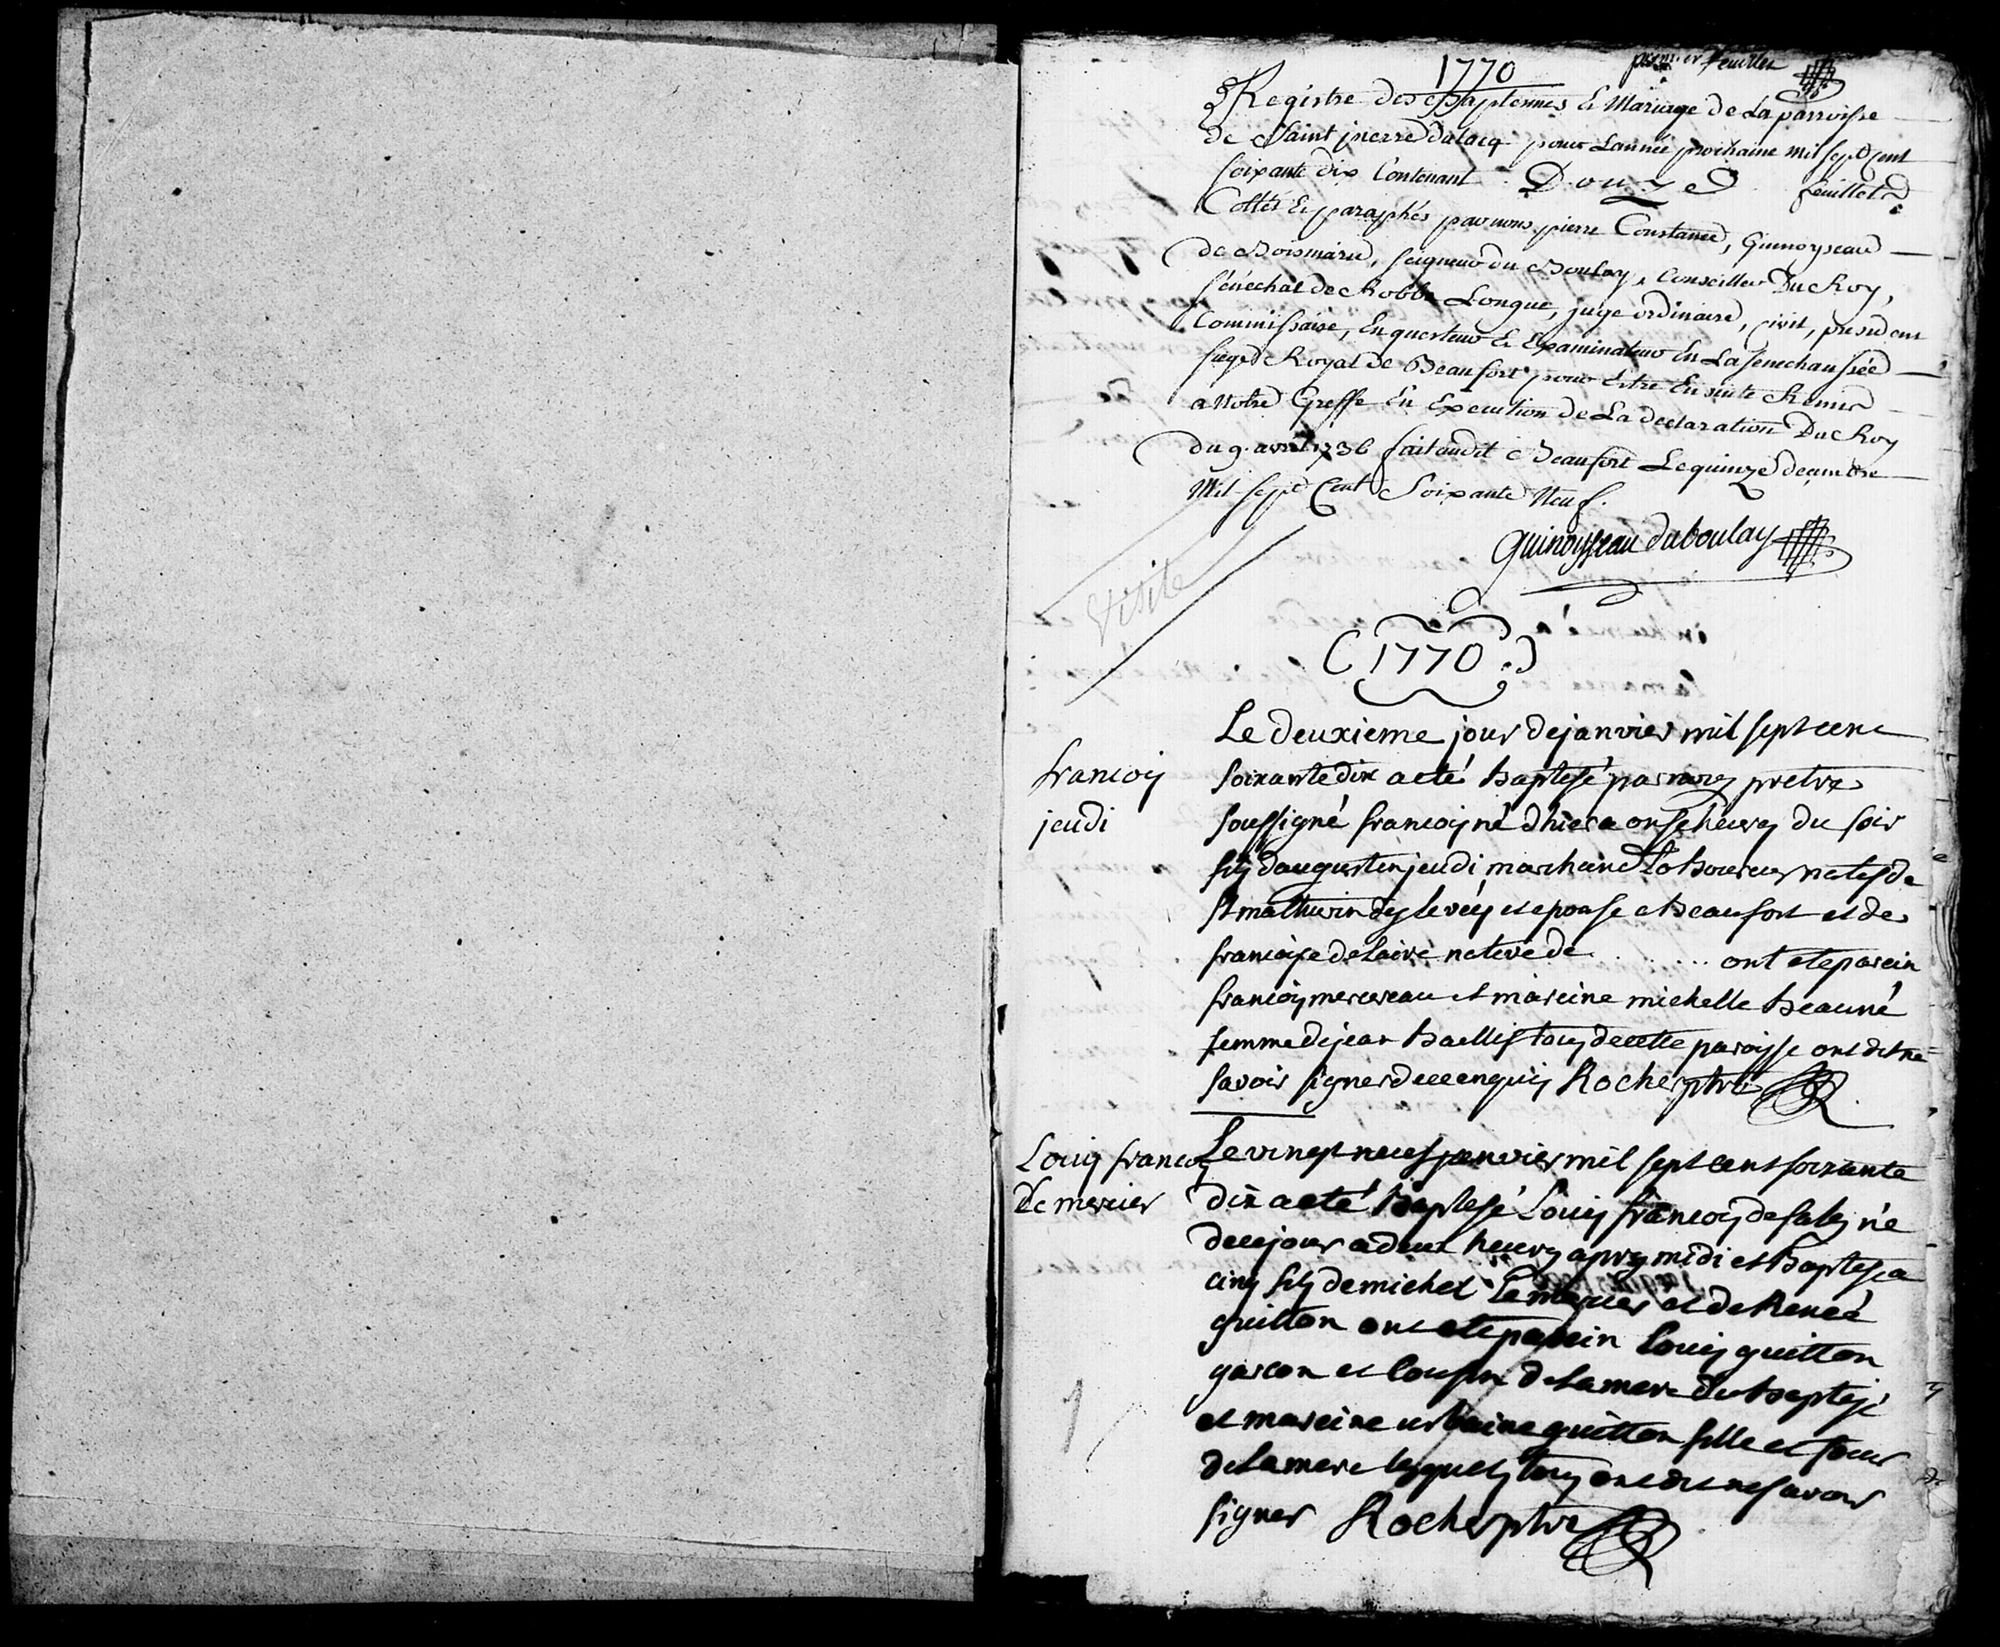 1770
premier feuillet
Registre des Baptemes & Mariage de La parroisse
de Saint pierre Dulacq pour Lannée prochaine mil sept Cent
soixante dix Contenant Douze feuillets
Cottés & paraphés par nous pierre Constance, Guinoyseau
de Boismarie, seigneur du Boulay, Conseiller Du Roy,
sénéchal de Robbe Longue, juge ordinaire, civil, president
Commissaire, Enquesteur & Examinateur En La senechaussée
siege Royal de Beaufort pour Estre En suite Remis
a Notre Greffe En Execution de La declaration Du Roy
du 9. avril 1736 fait audit Beaufort Le quinze decembre
Mil sept Cent Soixante Neuf.
Guinoyseau duboulay
visite
(1770.)
Le deuxieme jour de janvier mil sept cent
francois
jeudi
soixante dix a eté baptesé par nous pretre
soussigné francois né dhier a onse heures du soir
fils daugustin jeudi marchand laboureur natif de
st mathurin des levées et epouse a beaufort et de
francoise delaire native de ........ ont ete parein
francois mercereau et mareine michelle beauné
femme de jean baellif tous de cette paroisse ont dit ne
savoir signer de ce enquis Rocher ptre
Louis francois
Le mercier
Le vingt neuf janvier mil sept cent soixante
dix a eté baptesé Louis francois de sales né
de ce jour a deux heures apres midi et baptesé a
cinq fils de michel Le mercier et de Reneé
guitton ont ete parein Louis guitton
garcon et cousin de la mere du baptesé
et mareine urbaine guitton fille et soeur
de la mere lesquels tous ont dit ne savoir
signer Rocher ptre